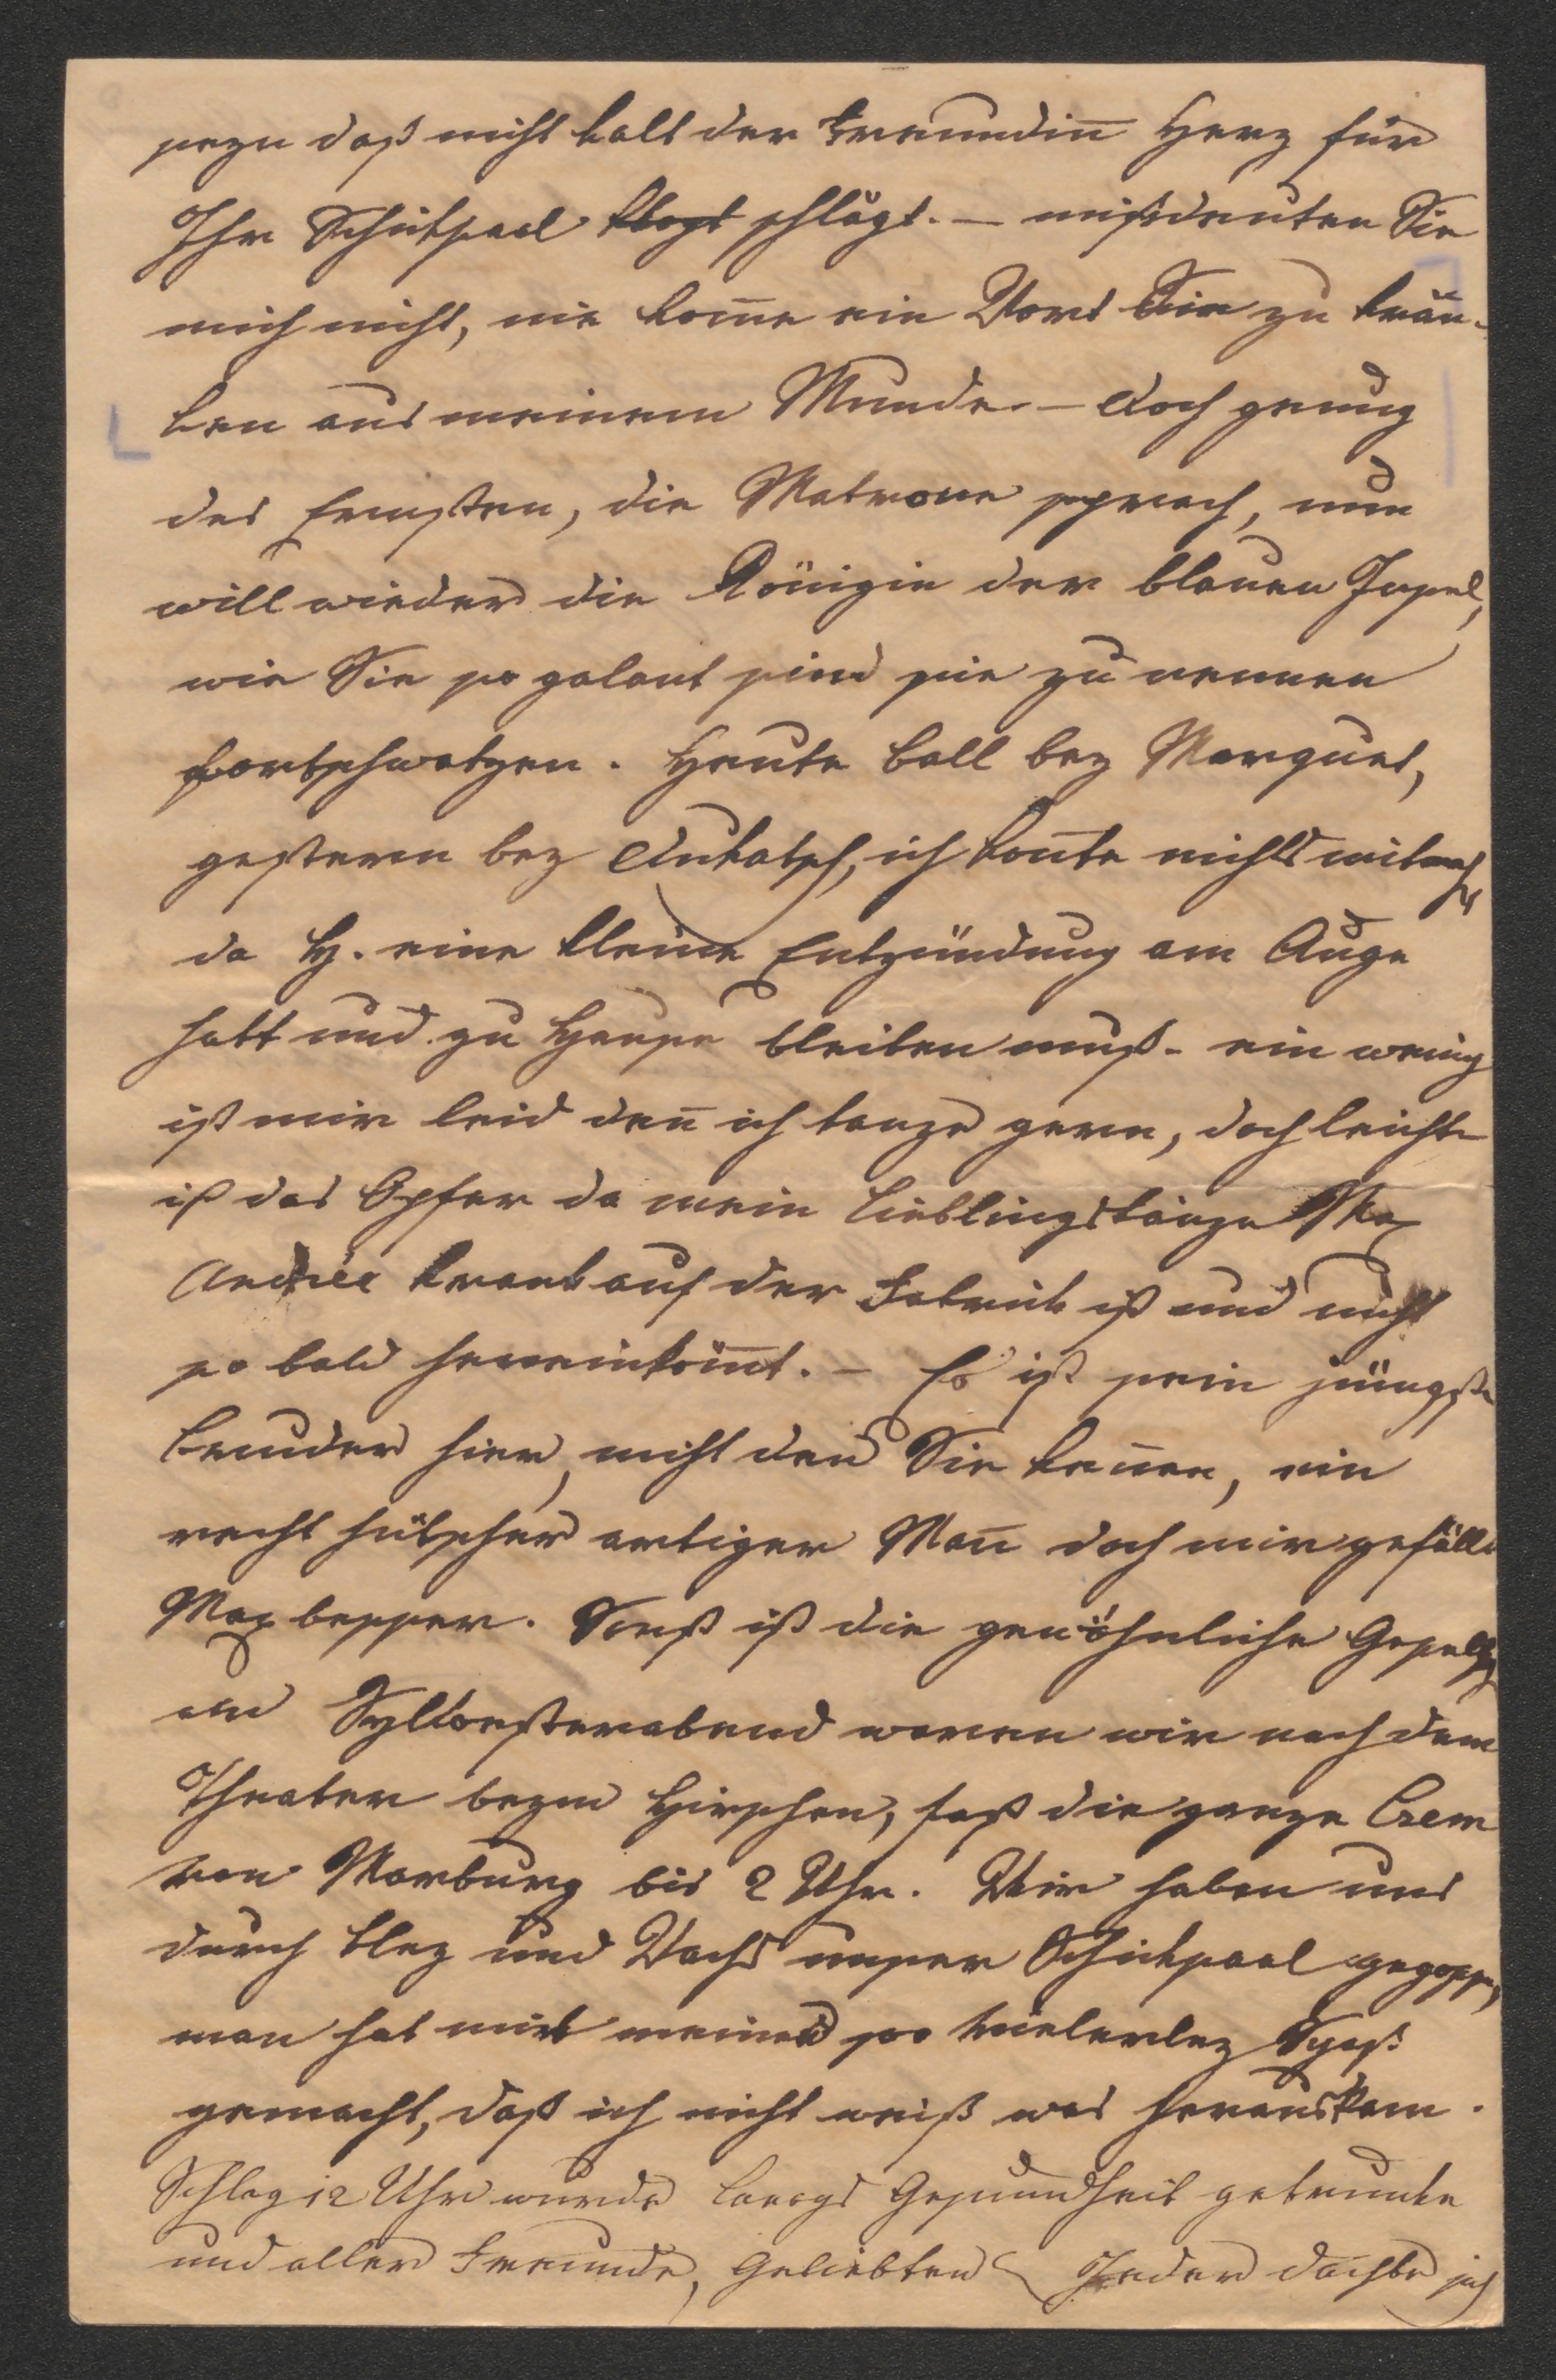 sezn daß nicht kalt der Freundin̅ Herz für
Ihr Schiksaal klopt schlägt. — mißdeuten Sie
mich nicht, nie kom̅e ein Wort Sie zu krän-
ken aus meinem Munde. — Doch genug
des Ernsten, die Matrone sprach, nun
will wieder die Königin der blauen Insel,
wie Sie so galant sind sie zu nennen
fortschwatzen. Heute ball bey Marquet,
gestern bey ich kon̅te nichts mitmach
da H. eine kleine Entzündung am Auge
hatt und zu Hause bleiben muß- ein wenig
ist mir leid den̅ ich tanze gern, doch leicht
ist das Opfer da mein Lieblingstänze Max
Andrée krank auf der Fabrik ist und nicht
so bald hereinkom̅t. — Es ist sein jüngste
bruder hier, nicht den Sie ken̅en, ein
recht hübscher artiger Man̅ doch mir gefällt
Max besser. Sonst ist die gewöhnliche Gesellsch
am Sylvesterabend waren wir nach dem
Theater beym Hirschen, fast die ganze Crem
von Marburg bis 2 Uhr. Wir haben uns
durch bley und Wachs unser Schicksaal gegossen,
man hat mit meinem so vielerley Spaß
gemacht, daß ich nicht weiß was herauskam.
Schlag 12 Uhr wurde Gesundheit getrunken
und aller Freunde, Geliebten Jeder dachte sich